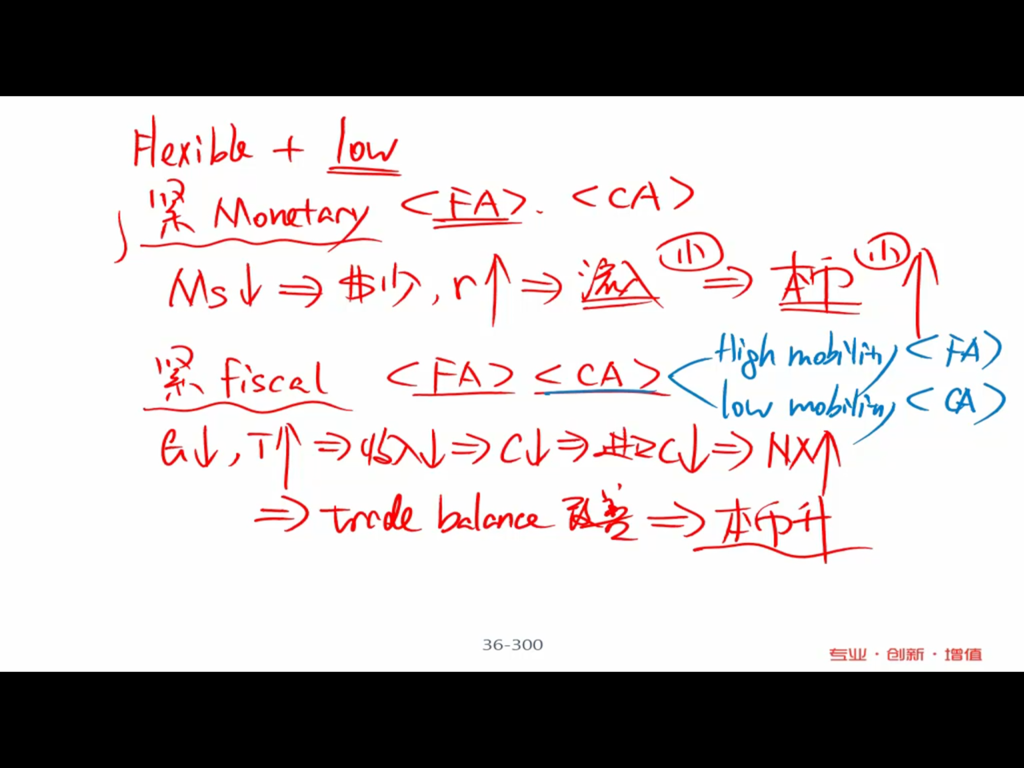 Flexible + low
紧 Monetary <FA>. <CA>
Ms↓ ⇒ 钱少, r↑ ⇒ 流入 小 ⇒ 本币 小 ↑
紧 fiscal <FA> <CA>
High mobility <FA>
low mobility <CA>
G↓, T↑ ⇒ 收入↓ ⇒ C↓ ⇒ 进口C↓ ⇒ NX↑
⇒ trade balance 改善 ⇒ 本币升
36-300
专业·创新·增值